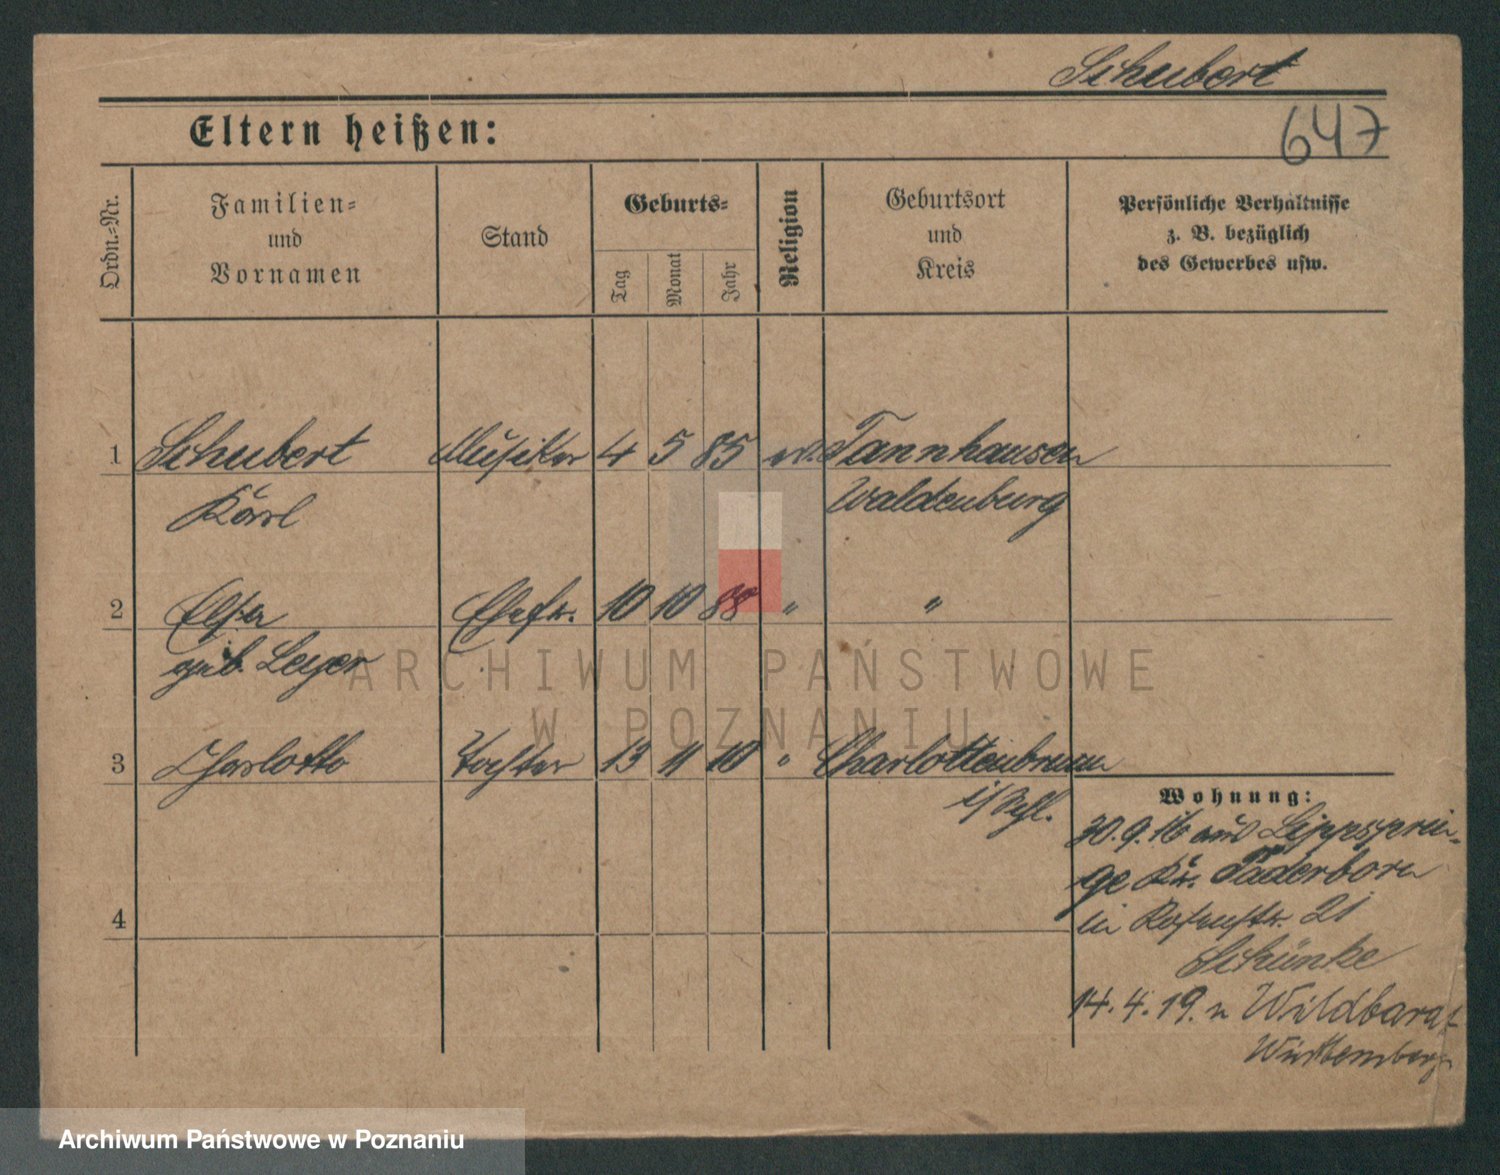 Schubert
647
Eltern heißen:
Ordn.-Nr.
Familien-
und
Vornamen
Stand
Geburts-
Tag
Monat
Jahr
Religion
Geburtsort
und
Kreis
Persönliche Verhältnisse
z. B. bezüglich
des Gewerbes usw.
1 Schubert Musiker 4 5 85 ev. Tannhausen
Karl Waldenburg
2 Elsa Ehefr. 10 10 88 " "
geb. Leyer
3 Charlotte Tochter 13 11 10 " Charlottenbrunn
i/Schl.
4
Wohnung:
30.9.16 aus Lippsprin-
ge Kr. Paderborn
in 21
Schünke
14.4.19. n Wildbad
Württemberg
ARCHIWUM PAŃSTWOWE
W POZNANIU
Archiwum Państwowe w Poznaniu